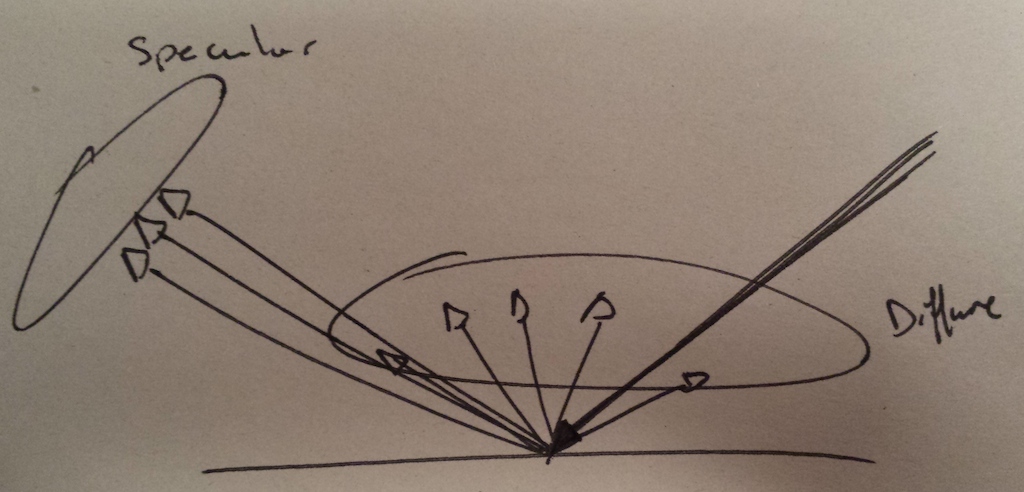 Specular
Diffuse